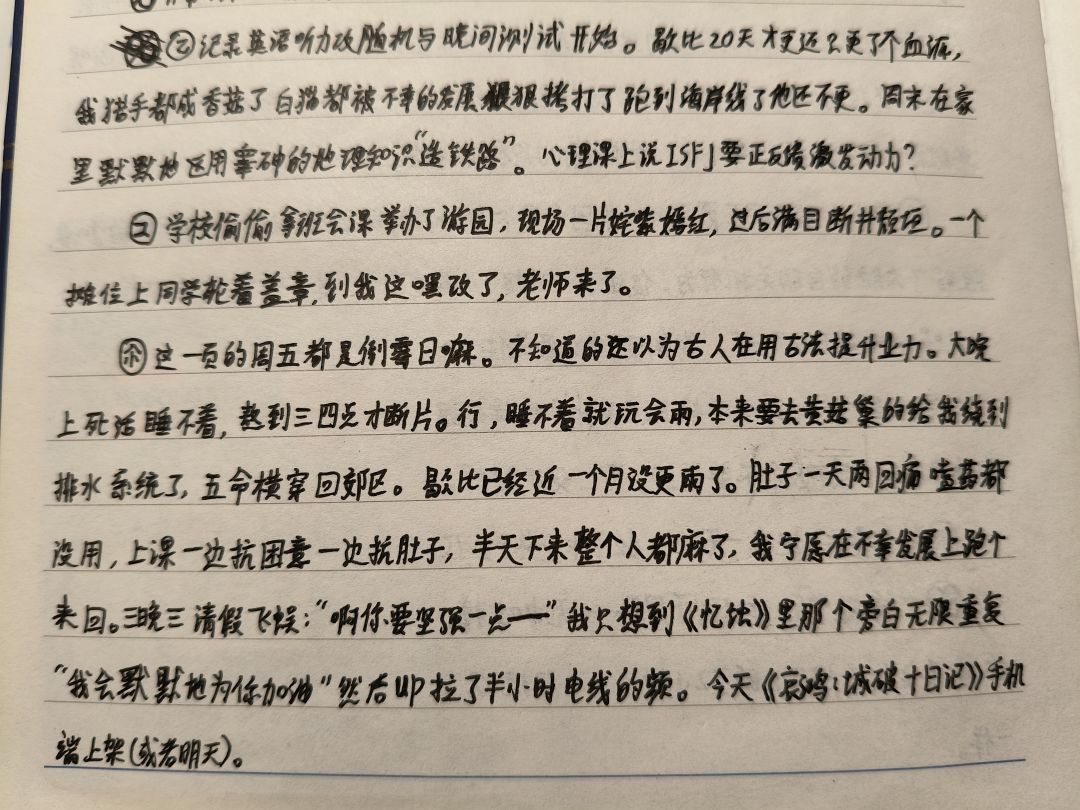 ㊁记录英语听力改随机与晚间测试开始。歇比20天才更还只更了个血源,
我猎手都成香菇了白猫都被不幸的发展狠狠拷打了跑到海岸线了他还不更。周末在家
里默默地运用掌砷的地理知识“造铁路”。心理课上说ISFJ要正反馈激发动力?
学校偷偷拿班会课举办了游园,现场一片姹紫嫣红,过后满目断井颓垣。一个
摊位上同学轮着盖章,到我这嘿改了,老师来了。
这一页的周五都是倒霉日嘛。不知道的还以为古人在用古法提升业力。大晚
上死活睡不着,熬到三四点才断片。行,睡不着就玩会雨,本来要去黄菇巢的给我绕到
排水系统了,五命横穿回郊区。歇比已经近一个月没更雨了。肚子一天两回痛嗑药都
没用,上课一边抗困意一边抗肚子,半天下来整个人都麻了,我宁愿在不幸发展上跑个
来回。三晚三请假飞候:“啊你要坚强一点——”我只想到《忆蚀》里那个旁白无限重复
“我会默默地为你加油”然后up拉了半小时电线的频。今天《哀鸿:城破十日记》手机
端上架(或者明天)。